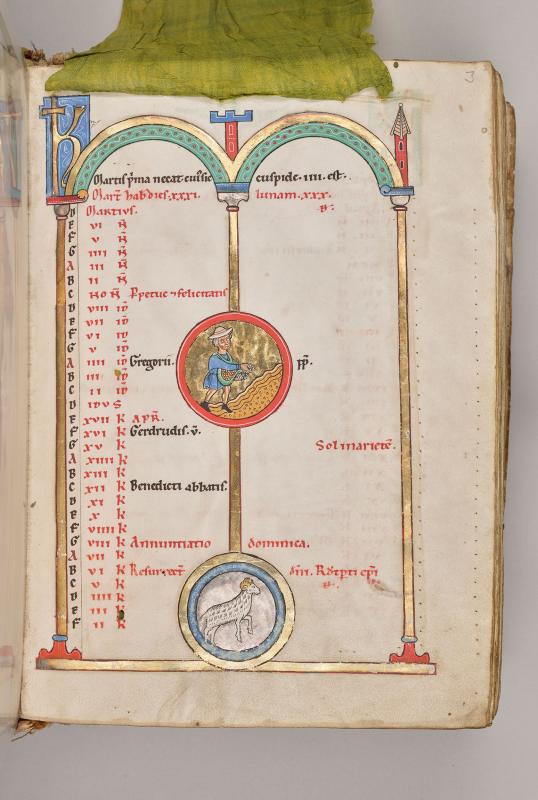 3
KL
Martis prima necat cuius cuspide. IIII. est.
Mart̄ hab dies. xxxi. lunam. xxx.
D Martius.
E vi N̄
F v N̄
G iiii N̄
A iii N̄
B ii N̄
C no N̄ Perpetue ⁊ felicitatis
D viii id̄
E vii id̄
F vi id̄
G v id̄
A iiii id̄ Gregorii. pp̄.
B iii id̄
C ii id̄
D idus
E xvii k Apr̄.
F xvi k Gerdrudis. v̄.
G xv k Sol in ariete.
A xiiii k
B xiii k
C xii k Benedicti abbatis.
D xi k
E x k
F viiii k
G viii k Annuntiatio dominica.
A vii k
B vi k Resurrect̄ dn̄i.
C v k
D iiii k
E iii k
F ii k